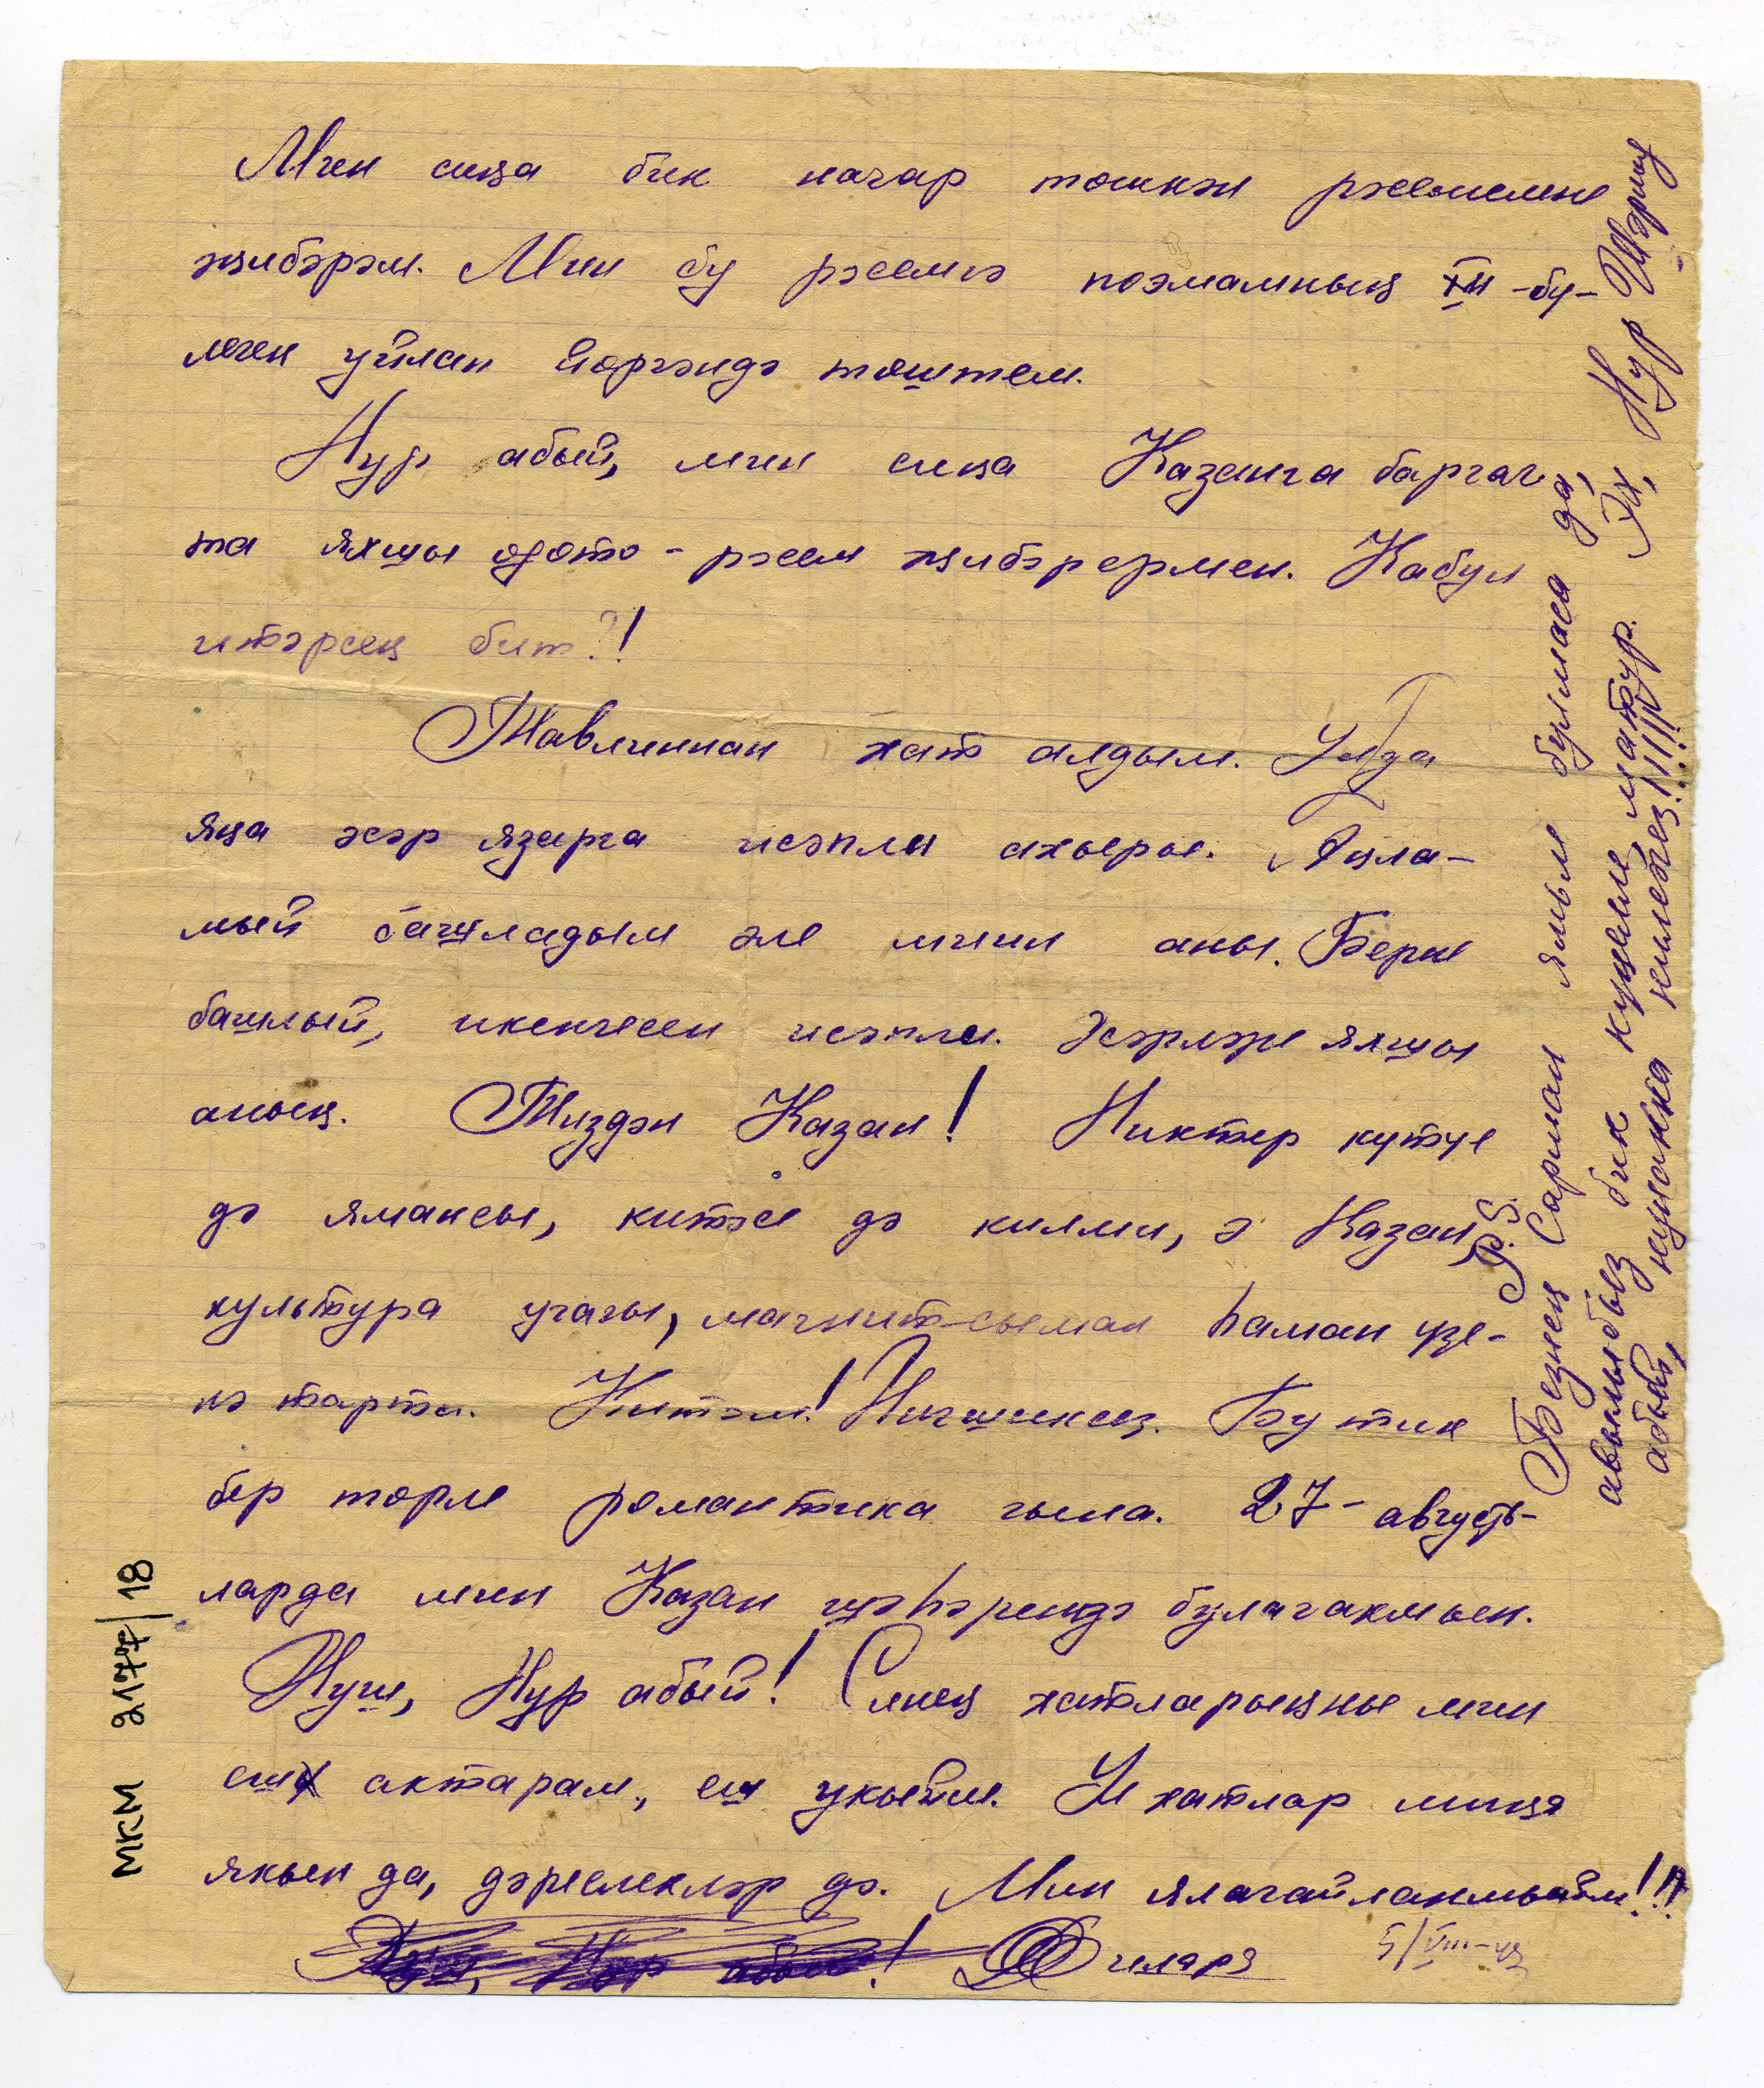 Мин сиңа бик начар төшкән рәсемемне
җибәрәм. Мин бу рәсемгә поэмамның XII -бү-
леген уйлап йөргәндә төштем.
Нур абый, мин сиңа Казанга баргач
та яхшы фото-рәсем җибәрермен. Кабул
итәрсең бит?!
Тавлиннан хат алдым. Ул да
яңа әсәр язарга исәпли ахыры. Аңла-
мый башладым әле мин аны. Берне
башлый, икенчесен исәпли. Әсәрләре яхшы
аның. Тиздән Казан! Никтер күтүе
дә ямансы, китәсе дә килми, ә Казан,
культура учагы, магнит сыман һаман үзе-
нә тарта. Китәм! Нишшисең. Бу тик
бер төрле романтика гына. 27-август-
ларда мин Казан шәһәрендә булачакмын.
Хуш, Нур абый! Синең хатларыңны мин
еш актарам, еш укыйм. Ул хатлар миңа
якын да, дәреслекләр дә. Мин ялагайланмыйм!!!
Хуш, Нур абый! Филәрә 5/VIII-
P.S.
Безнең Сарман ямьле булмаса да,
авылыбыз бик күңелле, матур. Эх, Нур Шәриф
абый, нишләп кенә килмәдегез!!!!!!
МКМ 2177/18